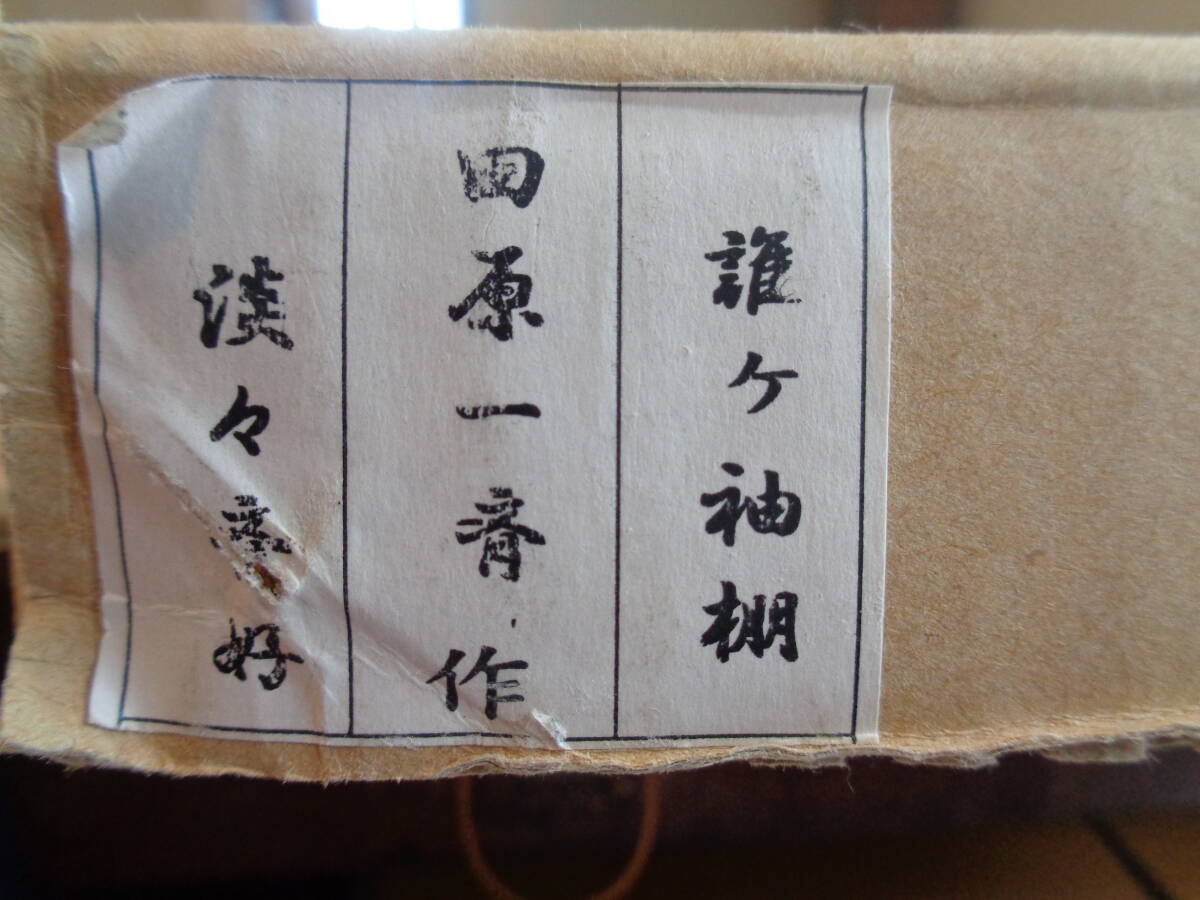 誰ケ袖棚
田原一斎作
淡々斎好